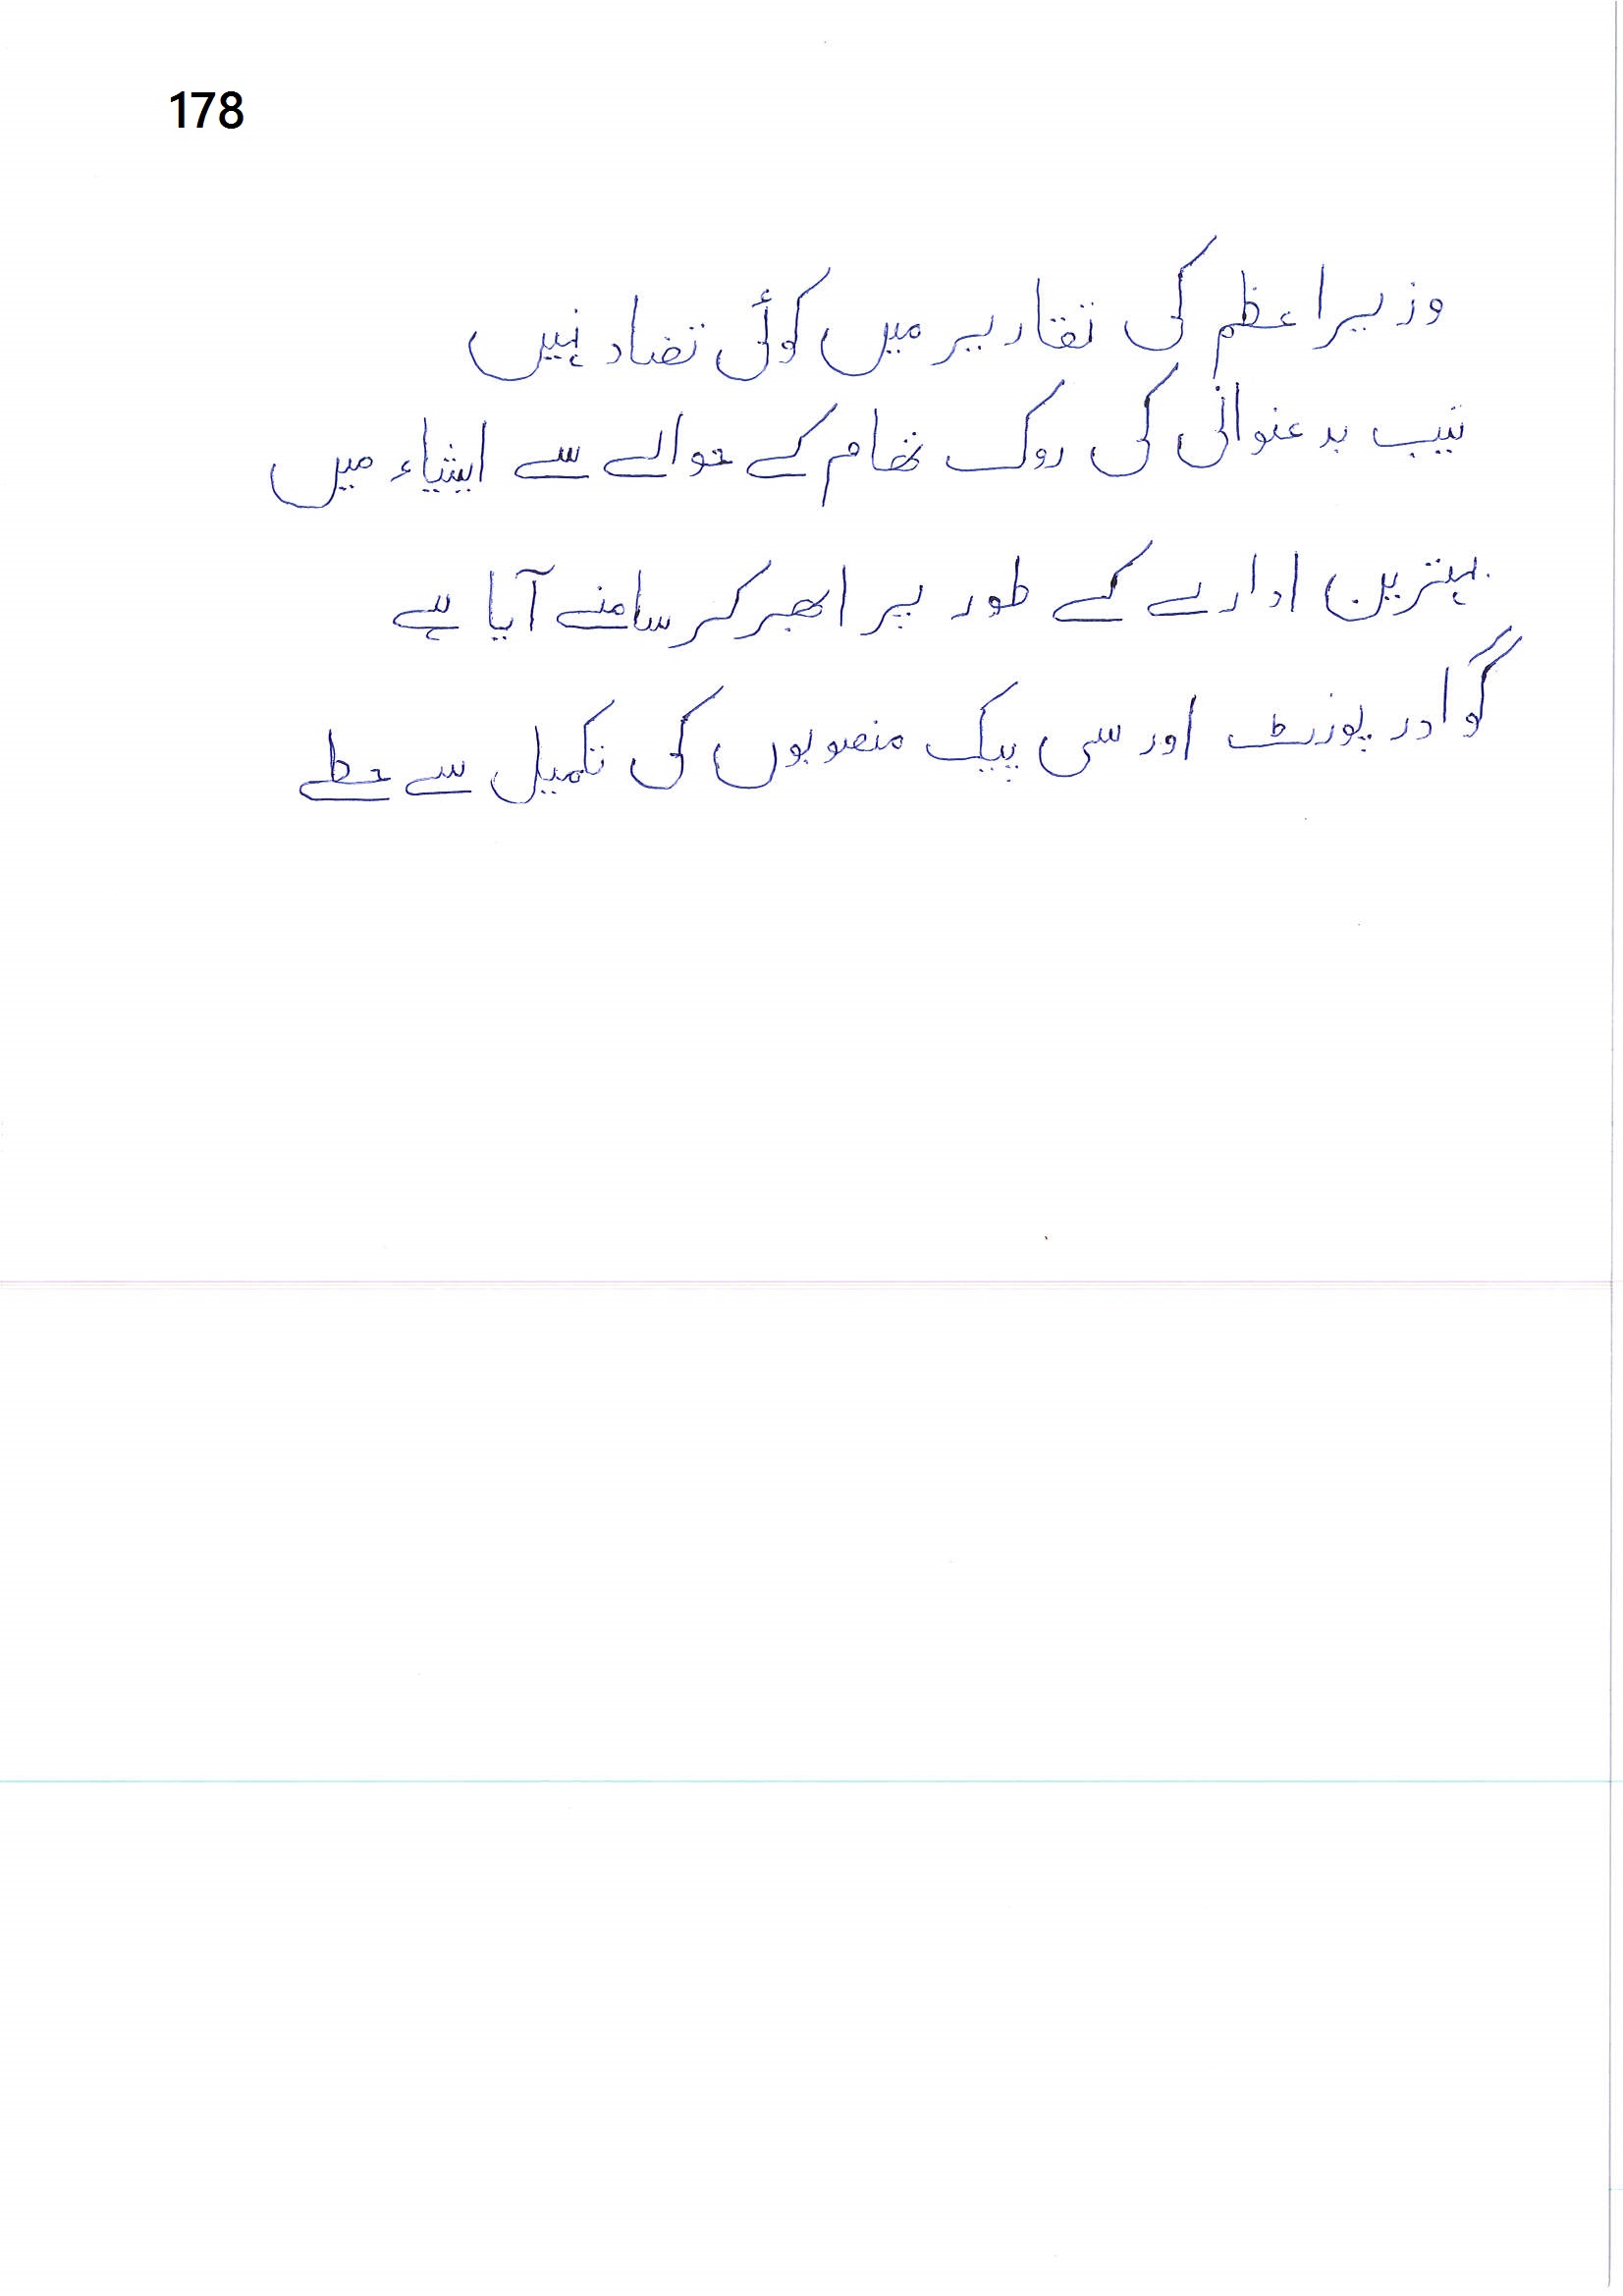 178
وزیراعظم کی تقاریر میں کوئی تضاد نہیں
نیب بدعنوانی کی روک تھام کے حوالے سے ایشیاء میں
بہترین ادارے کے طور پر ابھر کر سامنے آیا ہے
گوادر پورٹ اور سی پیک منصوبوں کی تکمیل سے خطے